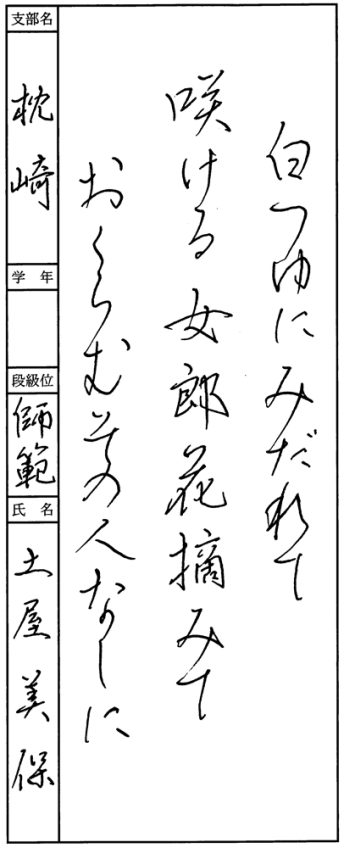 白つゆにみだれて
咲ける女郎花摘みて
おくらむその人なしに
支部名
枕崎
学年
段級位
師範
氏名
土屋美保